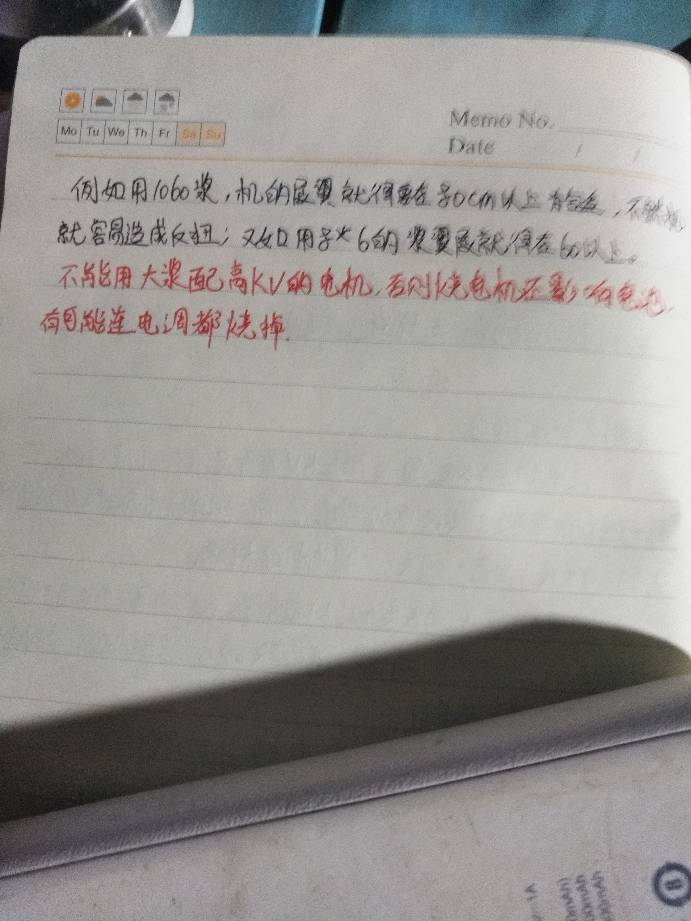 Mo Tu We Th Fr Sa Su
Memo No.
Date / /
例如用1060浆，机的展翼就得要在80cm以上才合适，不然
就容易造成反扭；又如用8*6的浆翼展就得在60以上。
不能用大浆配高KV的电机，否则烧电机还影响电池，
有可能连电调都烧掉.
mAh
B